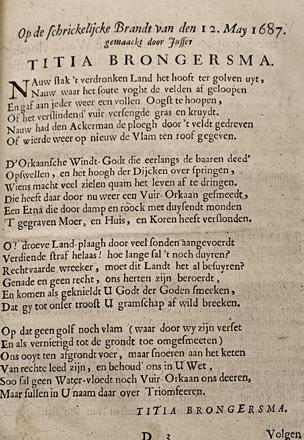 Op de schrickelijcke Brandt van den 12. May 1687.
gemaackt door Juffer
TITIA BRONGERSMA.
NAuw stak 't verdronken Land het hooft ter golven uyt,
Nauw waar het soute voght de velden af geloopen
En gaf aan jeder weer een vollen Oogst te hoopen,
Of het verslindend' vuir versengde gras en kruydt.
Nauw had den Ackerman de ploegh door 't veldt gedreven
Of wierde weer op nieuw de Vlam ten roof gegeven.
D'Orkaansche Windt-Godt die eerlangs de baaren deed'
Opswellen, en het hoogh der Dijcken over springen,
Wiens macht veel zielen quam het leven af te dringen.
Die heeft daar door nu weer een Vuir-Orkaan gesmeedt,
Een Etna die door damp en roock met duysendt monden
'T gegraven Moer, en Huis, en Koren heeft verslonden.
O! droeve Land-plaagh door veel sonden aangevoerdt
Verdiende straf helaas! hoe lange sal 't noch duyren?
Rechtvaarde wreeker, moet dit Landt het al besuyren?
Genade en geen recht, ons herten zijn beroerdt,
En komen als gekniеldt U Godt der Goden smeeken,
Dat gy tot onser troost U gramschap af wild breeken.
Op dat geen golf noch vlam (waar door wy zijn verset
En als vernietigd tot de grondt toe omgesmeeten)
Ons ooyt ten afgrondt voer, maar snoeren aan het keten
Van rechte leed zijn, en behoud' ons in U Wet,
Soo sal geen Water-vloedt noch Vuir-Orkaan ons deeren,
Maar sullen in U naam daar over Triomfeeren.
TITIA BRONGERSMA.
D 3
Volgen